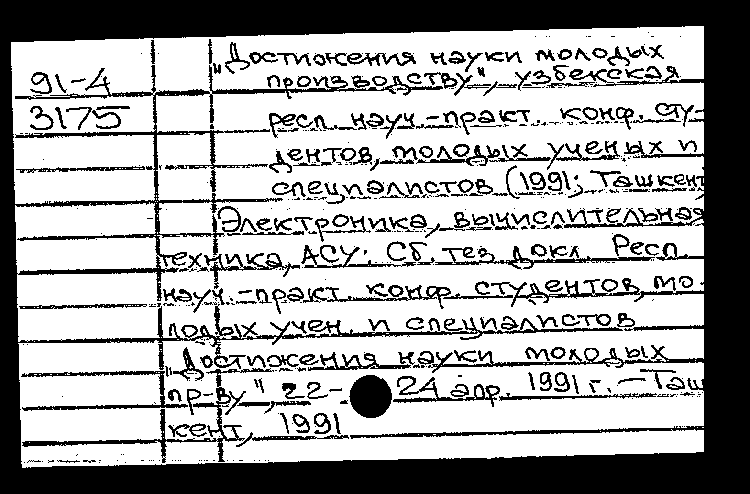 "Достижения науки молодых
91-4 производству", узбекская
3175 респ. науч.-практ. конф. сту-
дентов, молодых ученых и
специалистов (1991; Ташкент
Электроника, вычислительная
техника, АСУ: Сб. тез. докл. Респ.
науч.-практ. конф. студентов, мо-
лодых учен. и специалистов
"Достижения науки молодых
пр-ву", 22-24 апр. 1991 г. — Таш
кент, 1991